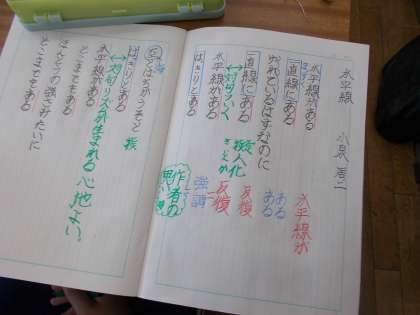 水平線
小泉周二
水平線がある
一直線にある
ゆれているはずなのに
一直線にある
水平線がある
はっきりとある
空とはちがうぞと
はっきりとある
水平線がある
どこまでもある
ほんとうの強さみたいに
どこまでもある
水平線が
ある
ある
反復
反復
強調
擬人化
対句
対句
リズムが生まれる
心地よい
作者の
思い